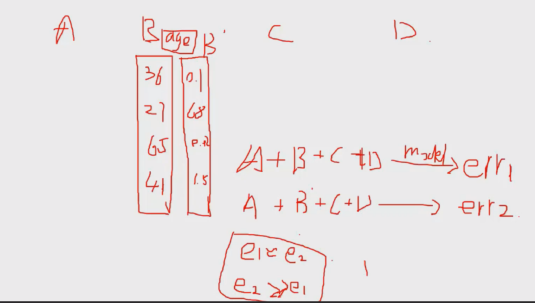 A B age B' C D
36 0.1
27 68
65
41 1.5
A+B+C+D model → err1
A+B'+C+D → err2
e1≈e2
e2≫e1